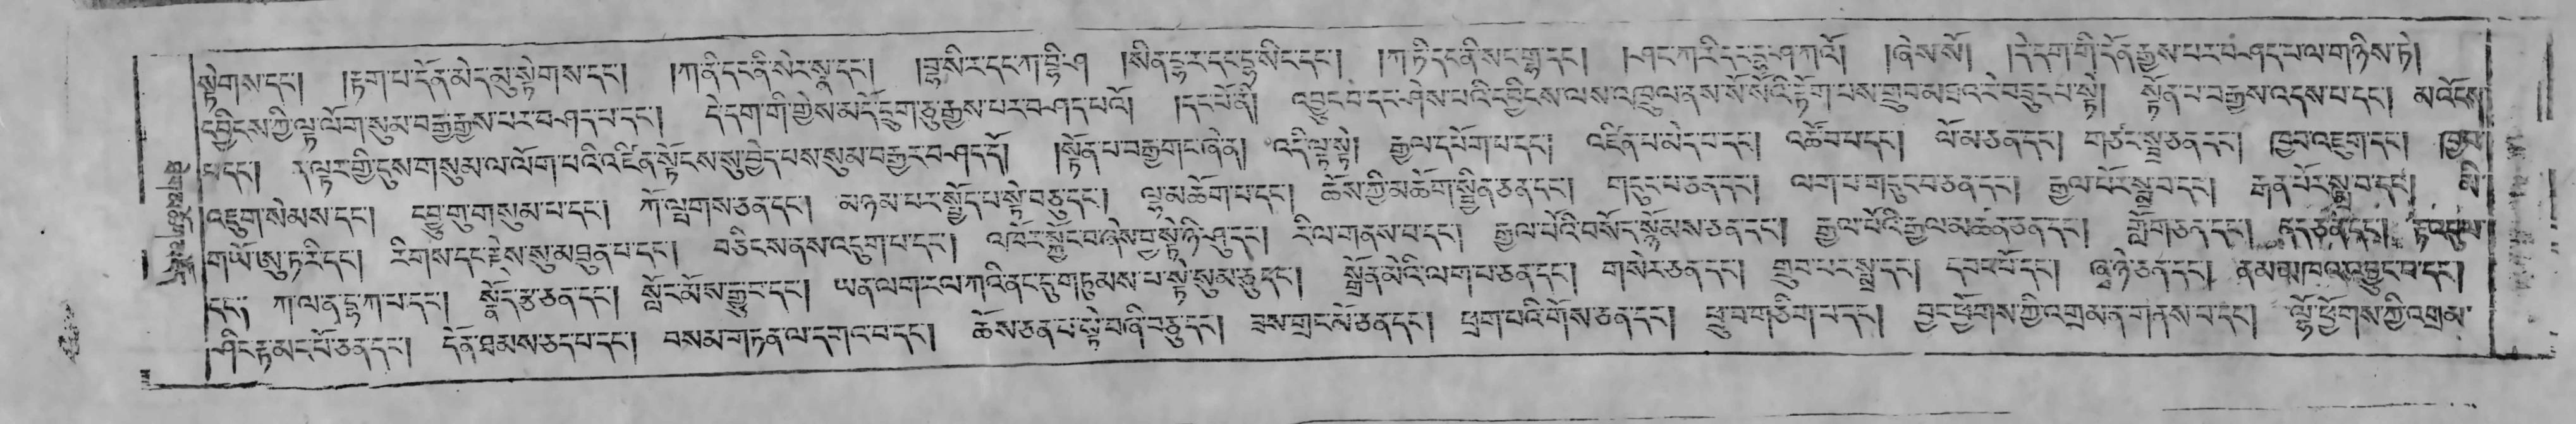 སྟེགས་དང༌། །རྟག་པ་དོན་མེད་མུ་སྟེགས་དང༌། །ཀ་ནི་དང་ནི་སེར་སྣ་དང༌། །བྷྲ་སིར་དང་ཀ་བྷི་ཤ །སིན་དྷ་ར་དང་དྷ་སིང་དང༌། །ཀ་ཏི་དང་ནི་སང་གྷ་དང༌། །ཤང་ཀ་རི་དང་དྷྲ་ཤ་ཀའོ། །ཞེས་སོ། །དེ་དག་གི་དོན་རྒྱས་པར་བཤད་པ་ལ་གཉིས་ཏེ།
དབྱིངས་ཀྱི་ལྟ་ལོག་སུམ་བརྒྱ་རྒྱས་པར་བཤད་པ་དང༌། དེ་དག་གི་གྱེས་མདོ་དྲུག་ཅུ་རྒྱས་པར་བཤད་པའོ། །དང་པོ་ནི། འབྱུང་བ་དང་ཤེས་པའི་དབྱིངས་ལས་འཁྲུལ་ནས་སོ་སོའི་རྟོག་པས་གྲུབ་མཐའ་རེ་བཟུང་པ་སྟེ། སྟོན་པ་བརྒྱས་འདས་པ་དང༌། མ་འོངས་
པ་དང༌། ད་ལྟར་གྱི་དུས་གསུམ་ལ་ལོག་པའི་འཛིན་སྟངས་སུ་བྱེད་པས་སུམ་བརྒྱར་བཤད་དོ། །སྟོན་པ་བརྒྱ་གང་ཞེ་ན། འདི་ལྟ་སྟེ། རྒྱལ་དཔོག་པ་དང༌། འཛིན་པ་མེད་པ་དང༌། འཚོབ་པ་དང༌། ལོ་མ་ཅན་དང༌། གཙང་སྦྲ་ཅན་དང༌། ཁྱབ་འཇུག་དང༌། ཁྱབ་
འཇུག་སེམས་དང༌། དབྱུ་གུ་གསུམ་པ་དང༌། ཀོ་ལྤགས་ཅན་དང༌། མཉམ་པར་སྤྱོད་པ་སྟེ་བཅུ་དང༌། ལྷ་མཆོག་པ་དང༌། ཆོས་ཀྱི་མཆོག་སྤྱིན་ཅན་དང༌། གདུང་པ་ཅན་དང༌། ལག་པ་གདུང་བ་ཅན་དང༌། རྒྱལ་པོར་སྨྲ་བ་དང༌། རྒན་པོར་སྨྲ་བ་དང༌། མི་
གཡོ་ཨུ་ཏ་རི་དང༌། རིགས་དང་རྗེས་སུ་མཐུན་པ་དང༌། བཅིངས་ནས་འདུག་པ་དང༌། འཁོར་སྐྱོང་བ་ཞེས་བྱ་སྟེ་ཉི་ཤུ་དང༌། རིལ་གནས་པ་དང༌། རྒྱལ་པོའི་བསོད་སྙོམས་ཅན་དང༌། རྒྱལ་པོའི་རྒྱལ་མཚན་ཅན་དང༌། གློག་ཅན་དང༌། ཅན་དང༌།
དང༌། ཀ་ལན་དྷ་ཀ་པ་དང༌། སྣོད་རྩ་ཅན་དང༌། སློང་མོས་རྒྱུང་དང༌། ཡན་ལག་ངལ་ཀའི་ནང་དུ་གཏུམས་པ་སྟེ་སུམ་ཅུ་དང༌། སྒྲོན་མེའི་ལག་པ་ཅན་དང༌། གསེར་ཅན་དང༌། གྲུབ་པར་སྨྲ་དང༌། དབང་པོ་དང༌། ཞྭ་ཉེ་ཅན་དང༌། ནམ་མཁའ་འབྱུང་བ་དང༌།
ཤིང་རྟ་མང་པོ་ཅན་དང༌། དོན་ཐམས་ཅད་པ་དང༌། བསམ་གཏན་ལ་དགའ་བ་དང༌། ཆོས་ཅན་པ་སྟེ་བཞི་བཅུ་དང༌། ཟས་གྲང་མོ་ཅན་དང༌། ཕྲག་པའི་གོས་ཅན་དང༌། ཕྲུ་བ་གཅིག་པ་དང༌། བྱང་ཕྱོགས་ཀྱི་འགྲམ་ན་གནས་པ་དང༌། ལྷོ་ཕྱོགས་ཀྱི་འགྲམ་